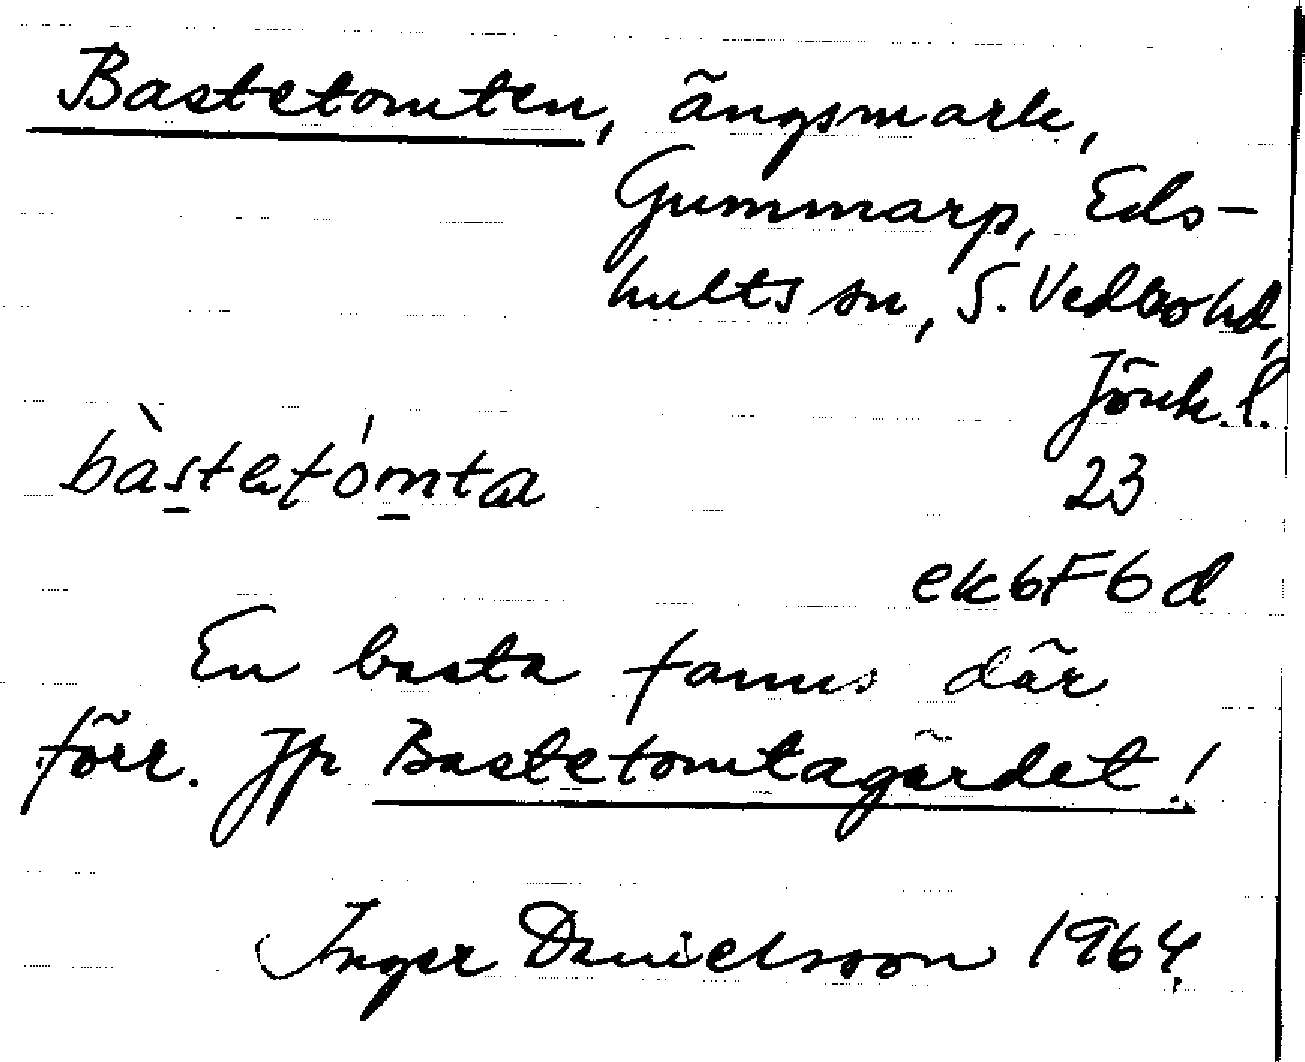 Bastetomten, ängsmark,
Gummarp, Eds-
hults sn, S. Vedbo hd,
Jönk. l.
bàstetómta
23
ek6F6d
En basta fanns där
förr. Jfr Bastetomtagärdet!
Inger Danielsson 1964.